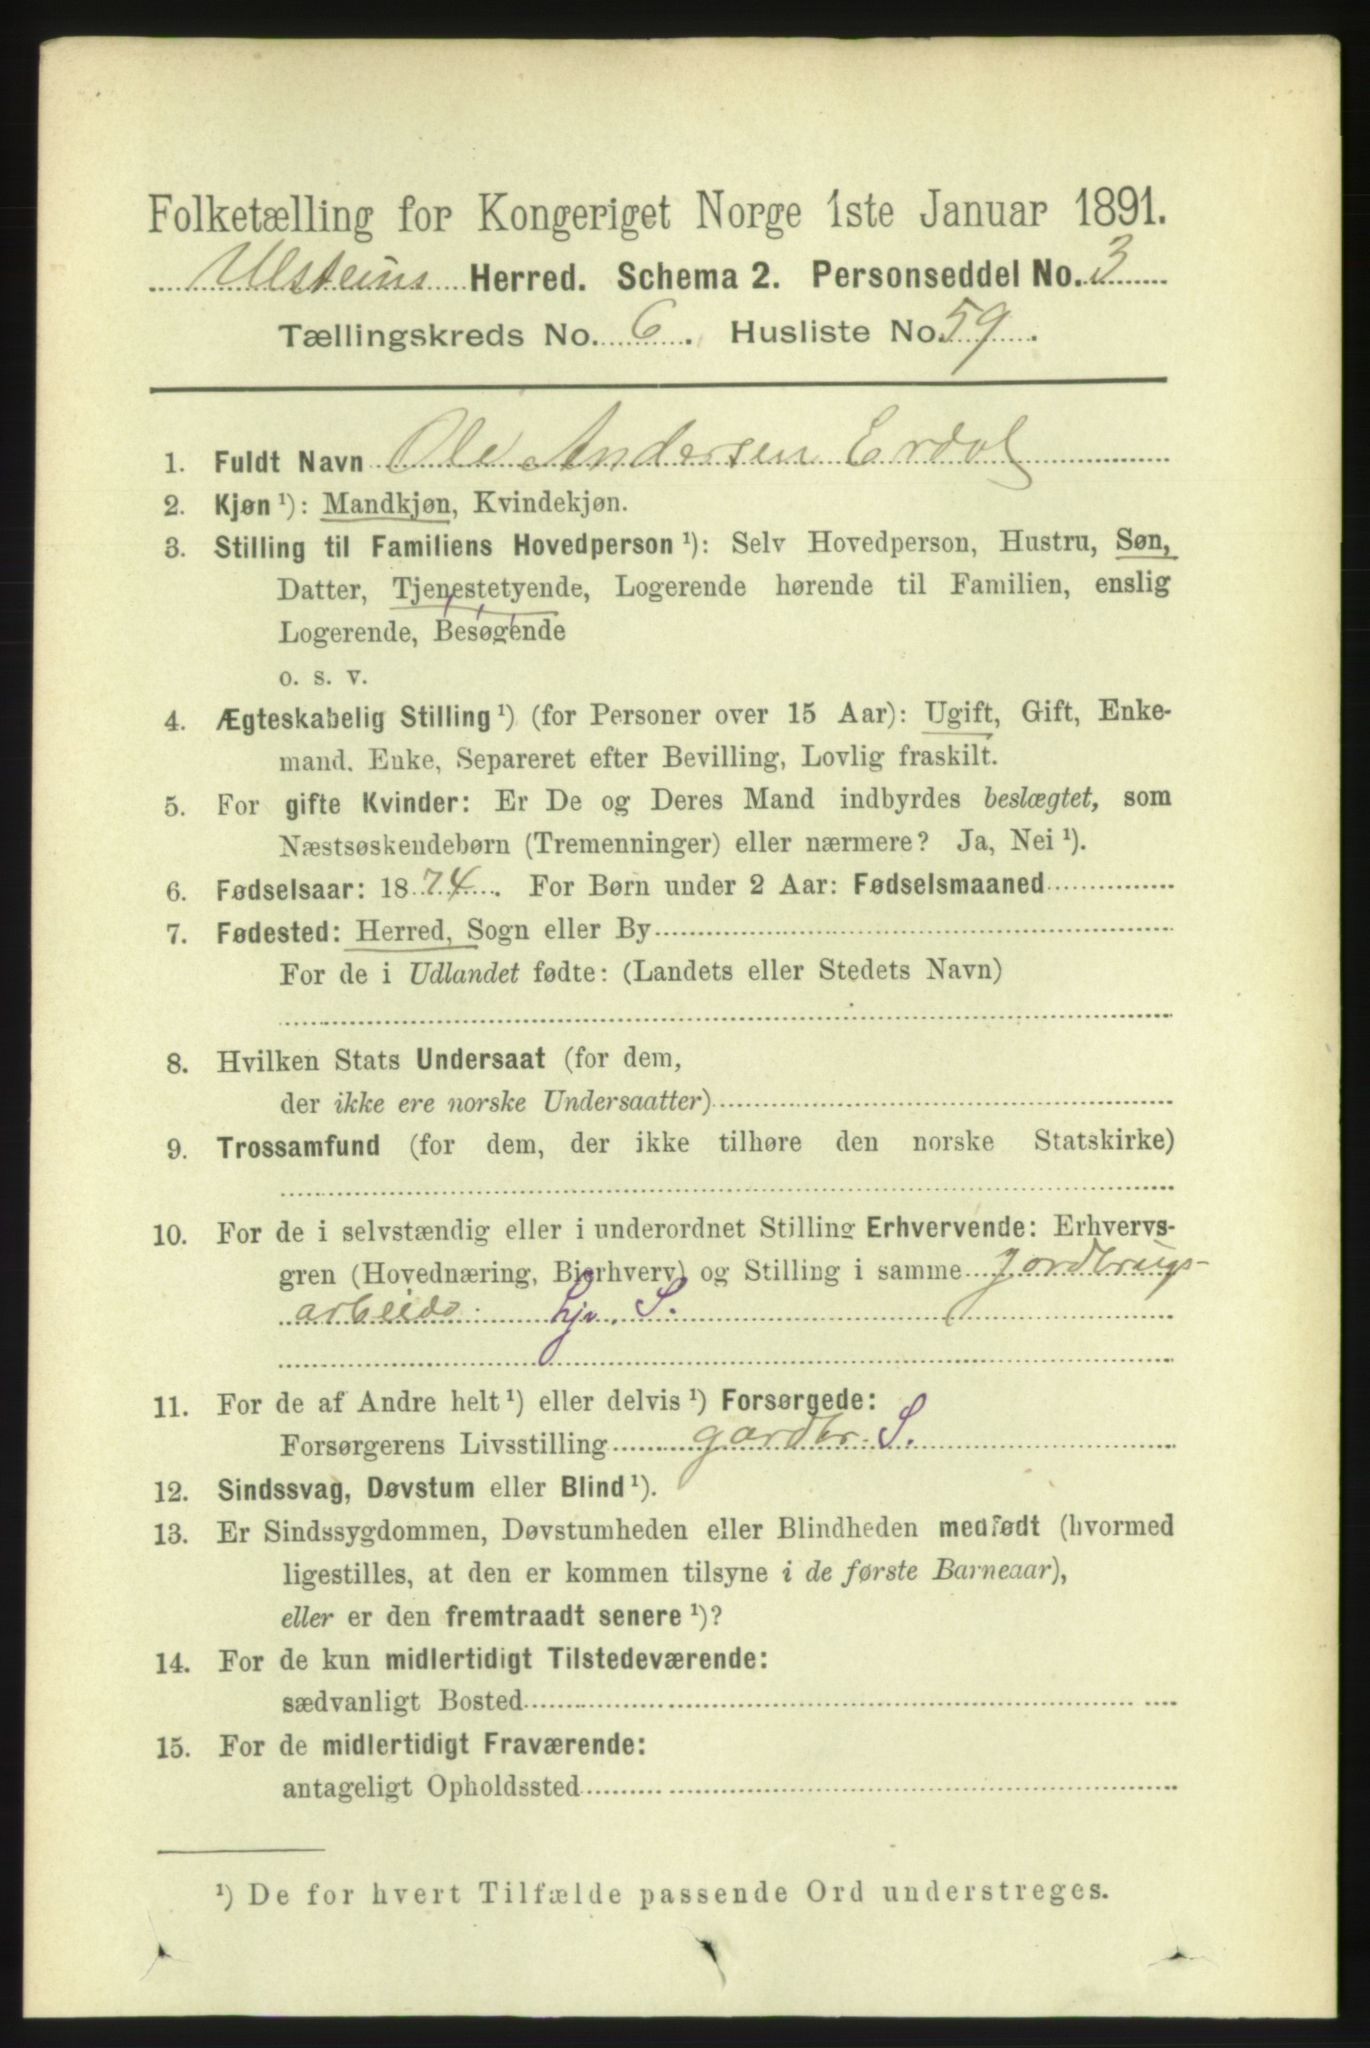 Folketælling for Kongeriget Norge 1ste Januar 1891.
Ulsteins Herred. Schema 2. Personseddel No. 3
Tællingskreds No. 6. Husliste No. 59.
1. Fuldt Navn Ole Andersen Erdal
2. Kjøn ¹): Mandkjøn, Kvindekjøn.
3. Stilling til Familiens Hovedperson ¹): Selv Hovedperson, Hustru, Søn,
Datter, Tjenestetyende, Logerende hørende til Familien, enslig
Logerende, Besøgende
o. s. v.
4. Ægteskabelig Stilling ¹) (for Personer over 15 Aar): Ugift, Gift, Enke-
mand. Enke, Separeret efter Bevilling, Lovlig fraskilt.
5. For gifte Kvinder: Er De og Deres Mand indbyrdes beslægtet, som
Næstsøskendebørn (Tremenninger) eller nærmere? Ja, Nei ¹).
6. Fødselsaar: 1874. For Børn under 2 Aar: Fødselsmaaned
7. Fødested: Herred, Sogn eller By
For de i Udlandet fødte: (Landets eller Stedets Navn)
8. Hvilken Stats Undersaat (for dem,
der ikke ere norske Undersaatter)
9. Trossamfund (for dem, der ikke tilhøre den norske Statskirke)
10. For de i selvstændig eller i underordnet Stilling Erhvervende: Erhvervs-
gren (Hovednæring, Bierhverv) og Stilling i samme Jordbrugs-
arbeide. hjv. S.
11. For de af Andre helt ¹) eller delvis ¹) Forsørgede:
Forsørgerens Livsstilling gardbr. S.
12. Sindssvag, Døvstum eller Blind ¹).
13. Er Sindssygdommen, Døvstumheden eller Blindheden medfødt (hvormed
ligestilles, at den er kommen tilsyne i de første Barneaar),
eller er den fremtraadt senere ¹)?
14. For de kun midlertidigt Tilstedeværende:
sædvanligt Bosted
15. For de midlertidigt Fraværende:
antageligt Opholdssted
¹) De for hvert Tilfælde passende Ord understreges.